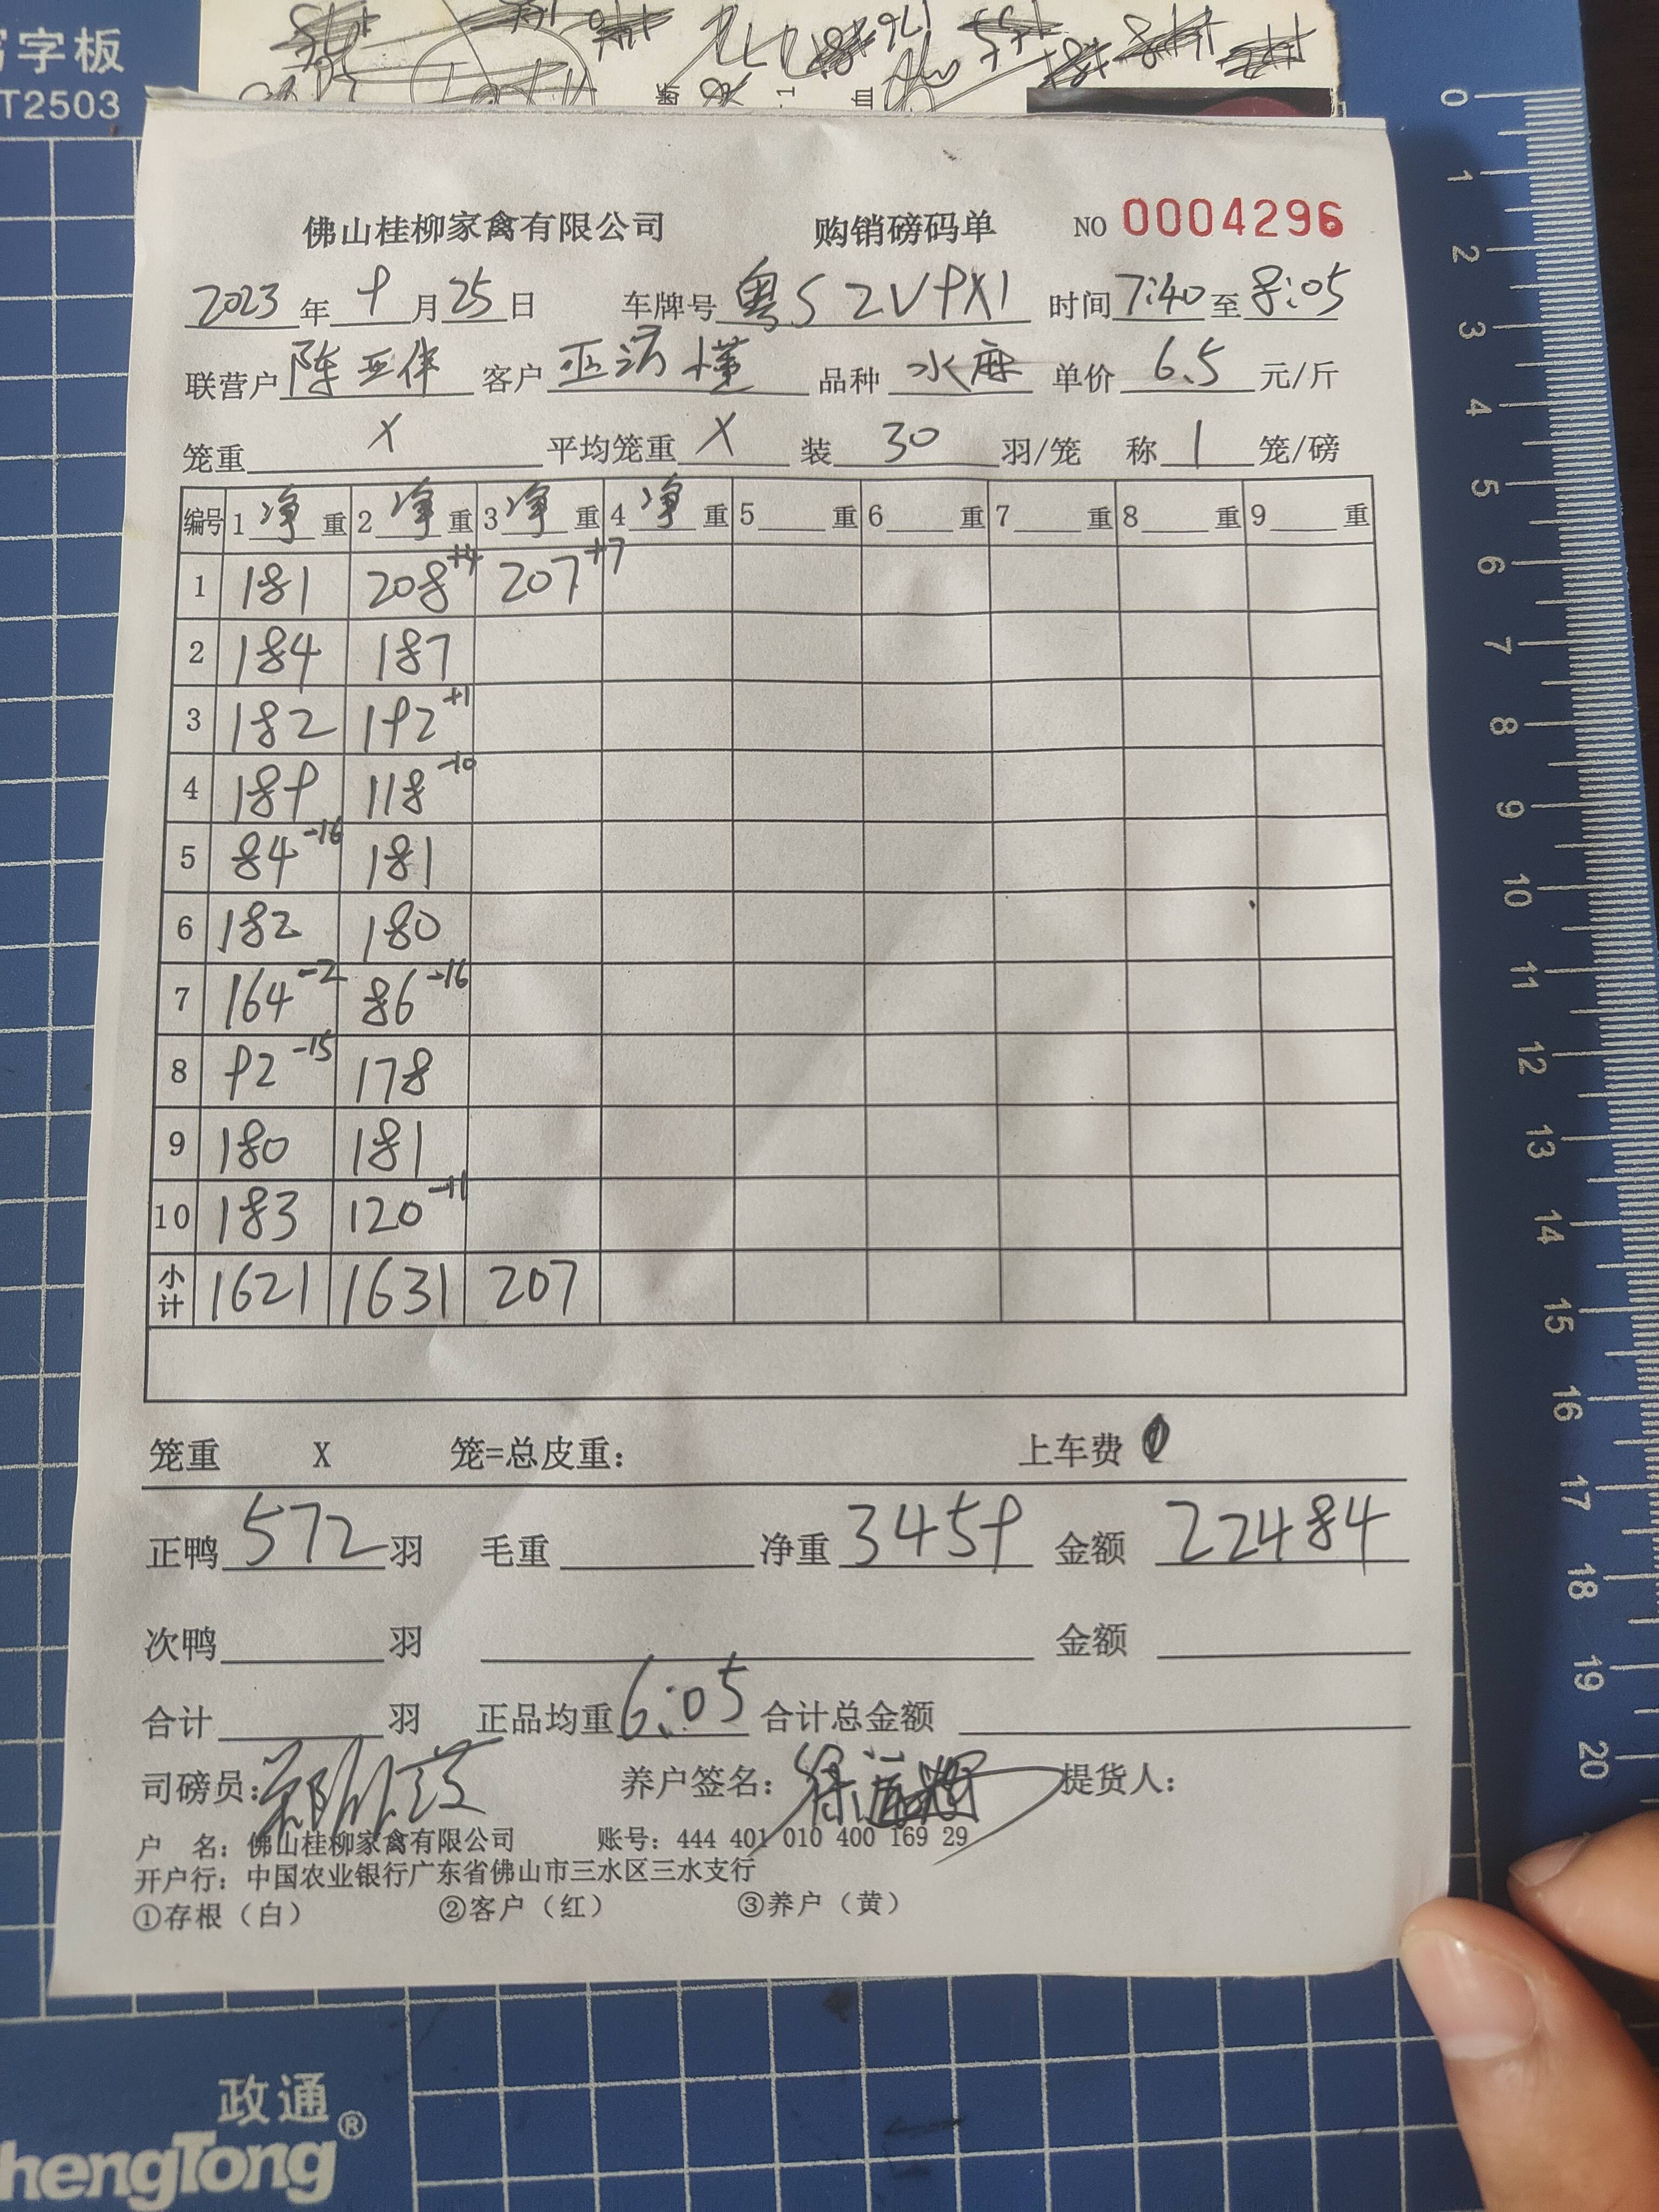 写字板
T2503
佛山桂柳家禽有限公司 购销磅码单 NO 0004296
2023 年 9 月 25 日 车牌号 粤S 2V9X1 时间 7:40 至 8:05
联营户 陈亚伴 客户 巫活懂 品种 水麻 单价 6.5 元/斤
笼重 X 平均笼重 X 装 30 羽/笼 称 1 笼/磅
编号 1 净 重 2 净 重 3 净 重 4 净 重 5 重 6 重 7 重 8 重 9 重
1 181 208+4 207+7
2 184 187
3 182 192+1
4 189 118-10
5 84-16 181
6 182 180
7 164-2 86-16
8 92-15 178
9 180 181
10 183 120-11
小计 1621 1631 207
笼重 X 笼=总皮重: 上车费 0
正鸭 572 羽 毛重 净重 3459 金额 22484
次鸭 羽 金额
合计 羽 正品均重 6.05 合计总金额
司磅员: 养户签名: 提货人:
户 名: 佛山桂柳家禽有限公司 账号: 444 401 010 400 169 29
开户行: 中国农业银行广东省佛山市三水区三水支行
①存根（白） ②客户（红） ③养户（黄）
0
1
2
3
4
5
6
7
8
9
10
11
12
13
14
15
16
17
18
19
20
政通®
hengTong